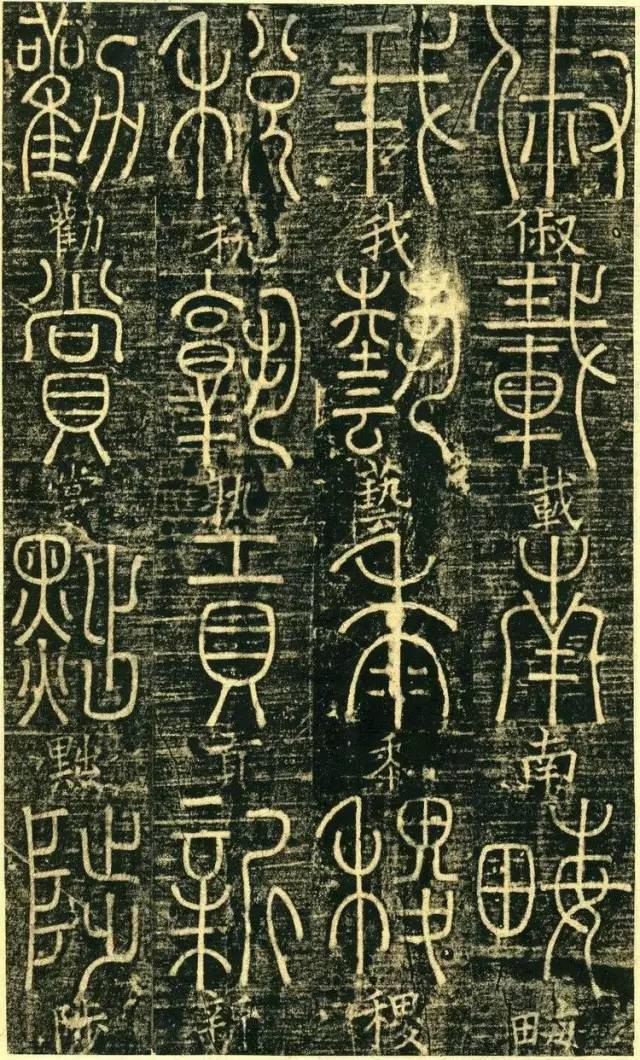 俶俶載載南南畮畮
我我藝藝黍黍稷稷
稅稅孰孰貢貢新新
勸勸賞賞黜黜陟陟